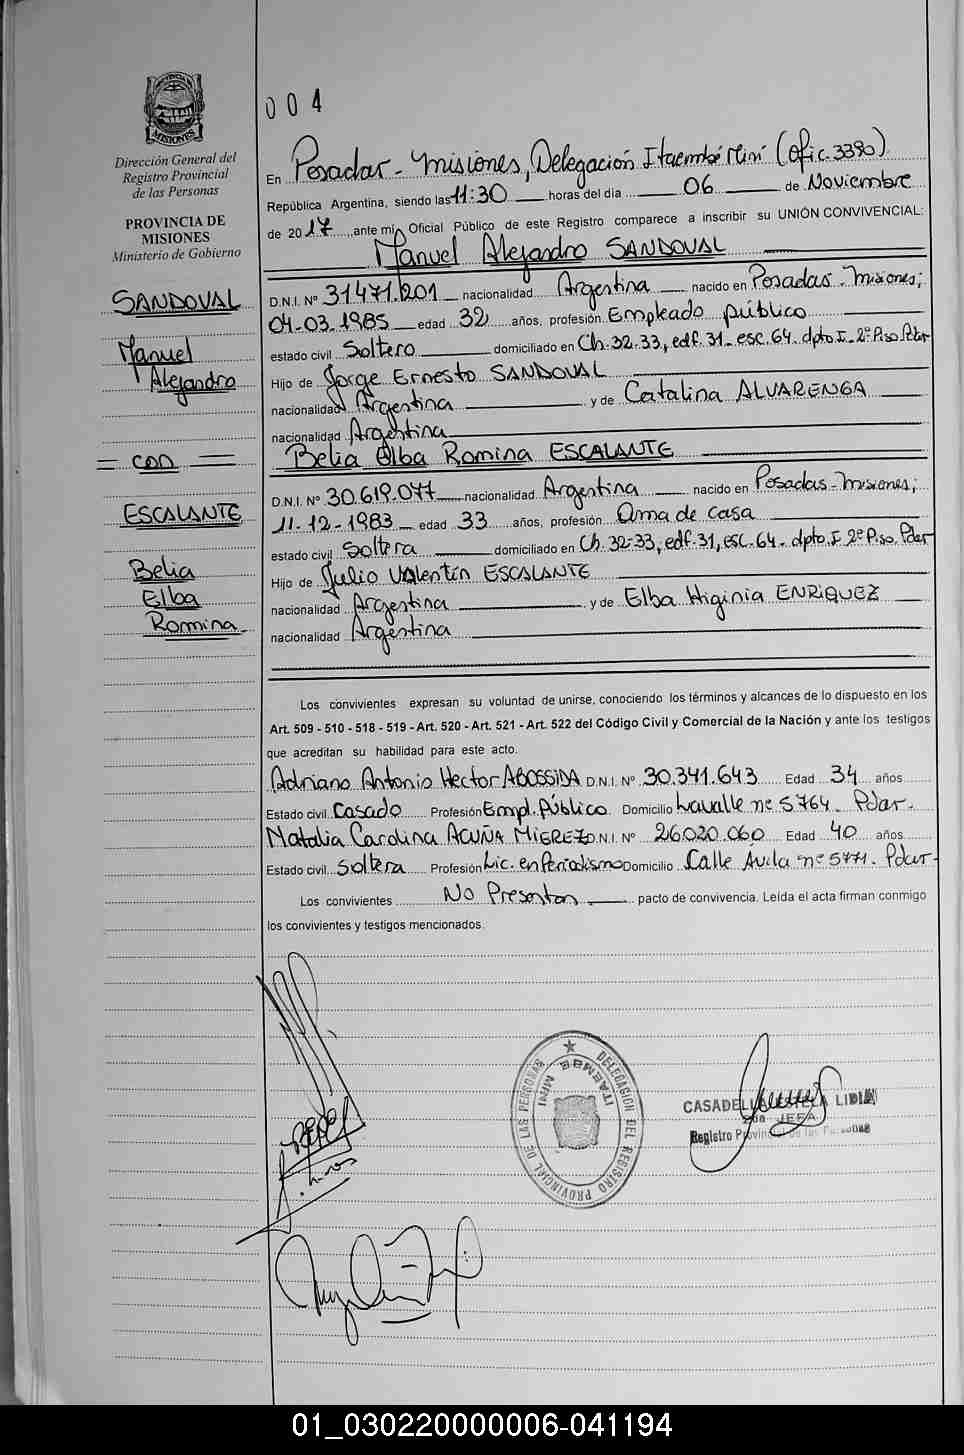 004
PROVINCIA DE
MISIONES
Dirección General del
Registro Provincial
de las Personas
PROVINCIA DE
MISIONES
Ministerio de Gobierno
SANDOVAL
Manuel
Alejandro
= con =
ESCALANTE
Belia
Elba
Romina
En Posadas - Misiones, Delegación Itaembé Miní (Ofic. 3380)
República Argentina, siendo las 11:30 horas del día 06 de Noviembre
de 2017 ante mi, Oficial Público de este Registro comparece a inscribir su UNIÓN CONVIVENCIAL:
Manuel Alejandro SANDOVAL
D.N.I. Nº 31.471.201 nacionalidad Argentina nacido en Posadas - Misiones;
04-03-1985 edad 32 años, profesión Empleado público
estado civil Soltero domiciliado en Ch. 32-33, edf. 31- esc. 64- dpto. I- 2º Piso. Pdas
Hijo de Jorge Ernesto SANDOVAL
nacionalidad Argentina y de Catalina ALVARENGA
nacionalidad Argentina
Belia Elba Romina ESCALANTE
D.N.I. Nº 30.619.077 nacionalidad Argentina nacido en Posadas - Misiones;
11-12-1983 edad 33 años, profesión Ama de casa
estado civil Soltera domiciliado en Ch. 32-33, edf. 31, esc. 64- dpto. I 2º Piso. Pdas
Hijo de Julio Valentín ESCALANTE
nacionalidad Argentina y de Elba Higinia ENRIQUEZ
nacionalidad Argentina
Los convivientes expresan su voluntad de unirse, conociendo los términos y alcances de lo dispuesto en los
Art. 509 - 510 - 518 - 519 - Art. 520 - Art. 521 - Art. 522 del Código Civil y Comercial de la Nación y ante los testigos
que acreditan su habilidad para este acto.
Adriano Antonio Hector ABOSSIDA D.N.I. Nº 30.341.643 Edad 34 años
Estado civil Casado Profesión Empl. Público Domicilio Lavalle nº 5764. Pdas.
Natalia Carolina ACUÑA MIEREZ D.N.I. Nº 26.020.060 Edad 40 años
Estado civil Soltera Profesión Lic. en Periodismo Domicilio Calle Ávila nº 5771. Pdas-
Los convivientes No Presentan pacto de convivencia. Leída el acta firman conmigo
los convivientes y testigos mencionados.
DELEGACION DEL REGISTRO PROVINCIAL DE LAS PERSONAS
ITAEMBE MINI
LIDIA
JEFA
Registro Provincial de las Personas
01_030220000006-041194